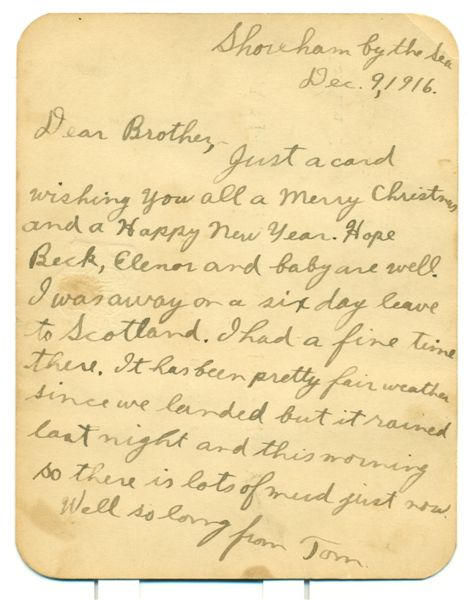 Shoreham by the Sea
Dec. 9, 1916.
Dear Brother,-
Just a card
wishing you all a Merry Christmas
and a Happy New Year. Hope
Beck, Elenor and baby are well.
I was away on a six day leave
to Scotland. I had a fine time
there. It has been pretty fair weather
since we landed but it rained
last night and this morning
so there is lots of mud just now.
Well so long from Tom